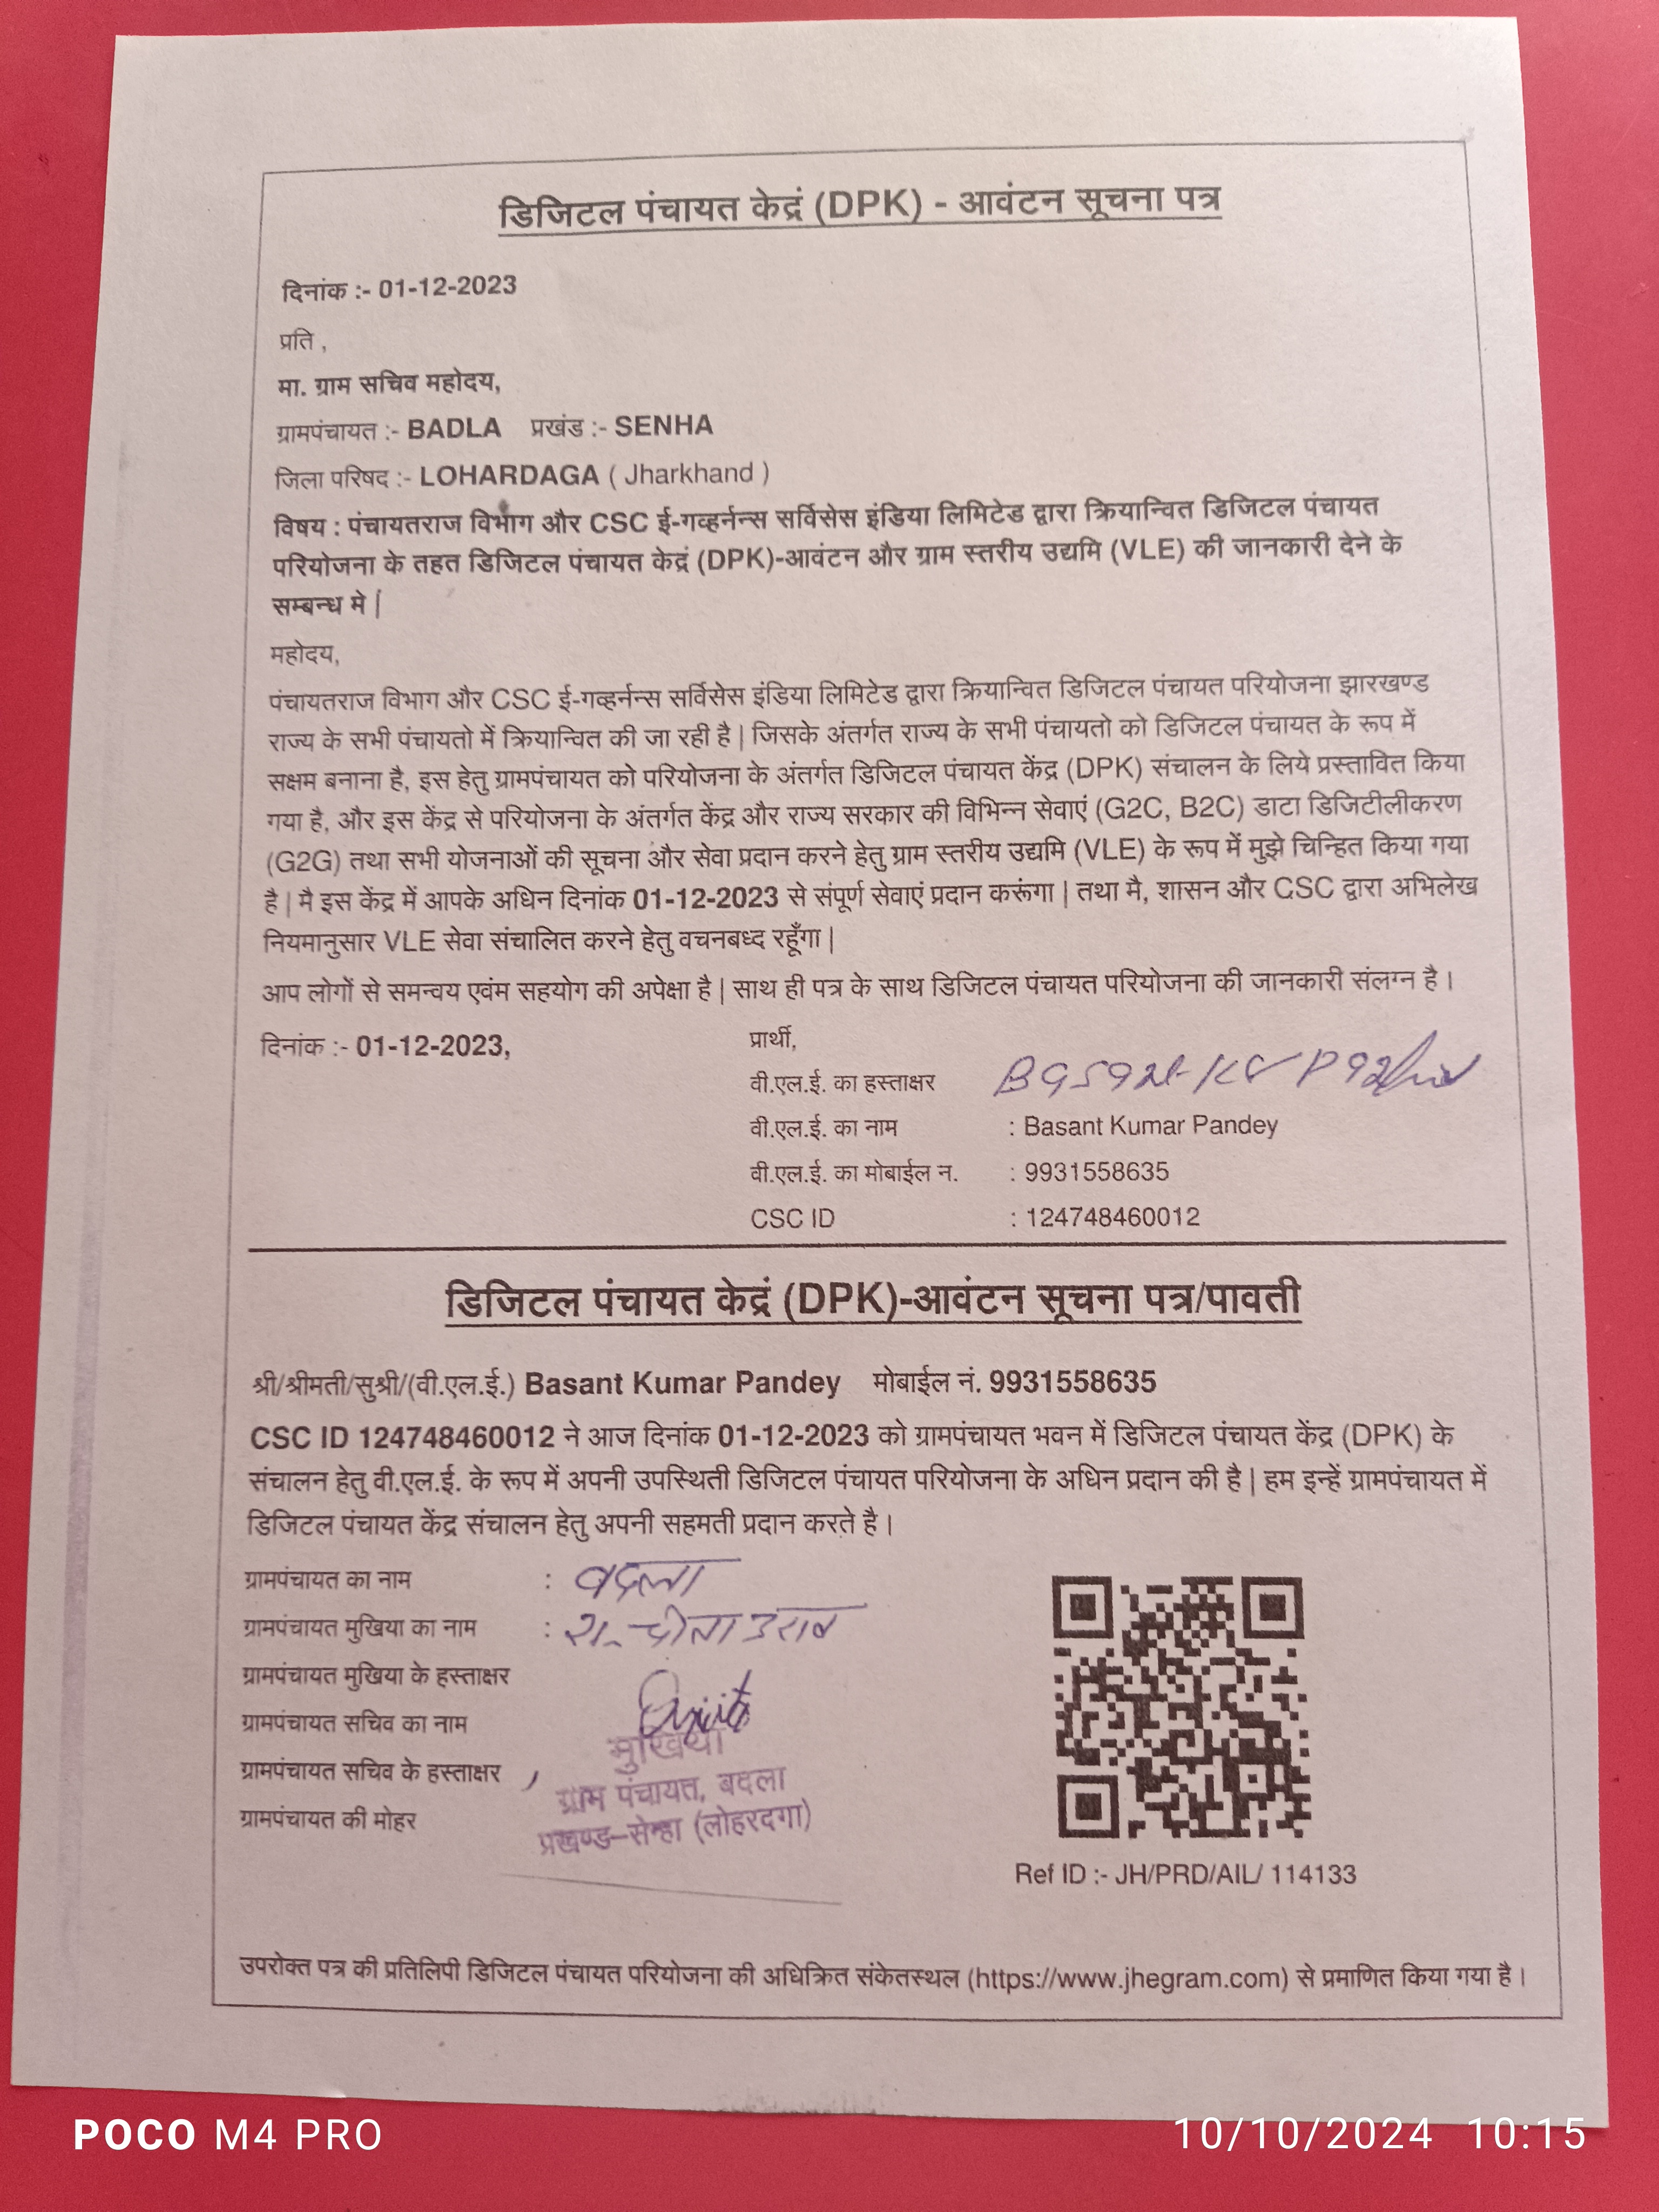 डिजिटल पंचायत केद्रं (DPK) - आवंटन सूचना पत्र
दिनांक :- 01-12-2023
प्रति ,
मा. ग्राम सचिव महोदय,
ग्रामपंचायत :- BADLA प्रखंड :- SENHA
जिला परिषद :- LOHARDAGA ( Jharkhand )
विषय : पंचायतराज विभाग और CSC ई-गव्हर्नन्स सर्विसेस इंडिया लिमिटेड द्वारा क्रियान्वित डिजिटल पंचायत
परियोजना के तहत डिजिटल पंचायत केद्रं (DPK)-आवंटन और ग्राम स्तरीय उद्यमि (VLE) की जानकारी देने के
सम्बन्ध मे |
महोदय,
पंचायतराज विभाग और CSC ई-गव्हर्नन्स सर्विसेस इंडिया लिमिटेड द्वारा क्रियान्वित डिजिटल पंचायत परियोजना झारखण्ड
राज्य के सभी पंचायतो में क्रियान्वित की जा रही है | जिसके अंतर्गत राज्य के सभी पंचायतो को डिजिटल पंचायत के रूप में
सक्षम बनाना है, इस हेतु ग्रामपंचायत को परियोजना के अंतर्गत डिजिटल पंचायत केंद्र (DPK) संचालन के लिये प्रस्तावित किया
गया है, और इस केंद्र से परियोजना के अंतर्गत केंद्र और राज्य सरकार की विभिन्न सेवाएं (G2C, B2C) डाटा डिजिटीलीकरण
(G2G) तथा सभी योजनाओं की सूचना और सेवा प्रदान करने हेतु ग्राम स्तरीय उद्यमि (VLE) के रूप में मुझे चिन्हित किया गया
है | मै इस केंद्र में आपके अधिन दिनांक 01-12-2023 से संपूर्ण सेवाएं प्रदान करूंगा | तथा मै, शासन और CSC द्वारा अभिलेख
नियमानुसार VLE सेवा संचालित करने हेतु वचनबध्द रहूँगा |
आप लोगों से समन्वय एवंम सहयोग की अपेक्षा है | साथ ही पत्र के साथ डिजिटल पंचायत परियोजना की जानकारी संलग्न है ।
दिनांक :- 01-12-2023,
प्रार्थी,
वी.एल.ई. का हस्ताक्षर
वी.एल.ई. का नाम : Basant Kumar Pandey
वी.एल.ई. का मोबाईल न. : 9931558635
CSC ID : 124748460012
डिजिटल पंचायत केद्रं (DPK)-आवंटन सूचना पत्र/पावती
श्री/श्रीमती/सुश्री/(वी.एल.ई.) Basant Kumar Pandey मोबाईल नं. 9931558635
CSC ID 124748460012 ने आज दिनांक 01-12-2023 को ग्रामपंचायत भवन में डिजिटल पंचायत केंद्र (DPK) के
संचालन हेतु वी.एल.ई. के रूप में अपनी उपस्थिती डिजिटल पंचायत परियोजना के अधिन प्रदान की है | हम इन्हें ग्रामपंचायत में
डिजिटल पंचायत केंद्र संचालन हेतु अपनी सहमती प्रदान करते है ।
ग्रामपंचायत का नाम : बदला
ग्रामपंचायत मुखिया का नाम :
ग्रामपंचायत मुखिया के हस्ताक्षर
ग्रामपंचायत सचिव का नाम
ग्रामपंचायत सचिव के हस्ताक्षर
ग्रामपंचायत की मोहर
मुखिया
ग्राम पंचायत, बदला
प्रखण्ड–सेन्हा (लोहरदगा)
Ref ID :- JH/PRD/AIL/ 114133
उपरोक्त पत्र की प्रतिलिपी डिजिटल पंचायत परियोजना की अधिक्रित संकेतस्थल (https://www.jhegram.com) से प्रमाणित किया गया है ।
POCO M4 PRO
10/10/2024 10:15